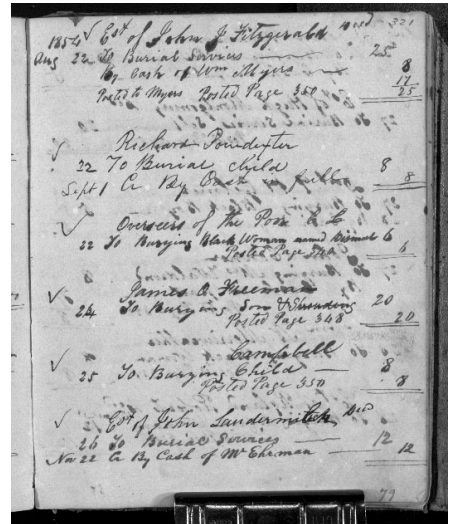 321
1854 √ Est of John J Fitzgerald Decd
Aug 22 To Burial Services 25
By Cash of Wm Myers 8
17
Posted to Myers Posted Page 350 25
√ Richard Poindexter
22 To Burial child 8
Sept 1 Cr By Cash in full 8
√ Overseers of the Poor C C
22 To Burying Black Woman named 6
Posted Page 6
√ James A Freeman
24 To Burying Son & Shrouding 20
Posted Page 348 20
√ Campbell
25 To Burying Child 8
Posted Page 350 8
√ Est of John Laudermilch Decd
26 To Burial Services 12
Nov 22 Cr By Cash of Mr Ehrman 12
79